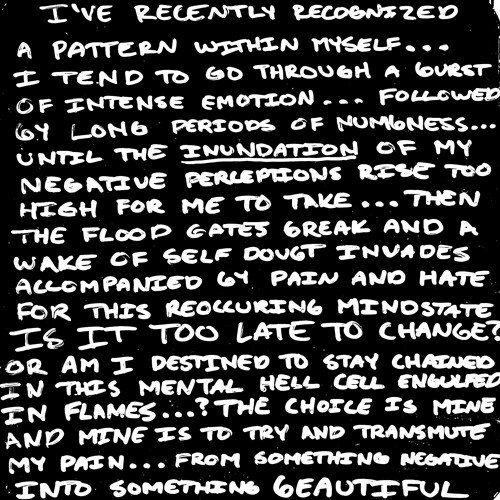 I'VE RECENTLY RECOGNIZED
A PATTERN WITHIN MYSELF...
I TEND TO GO THROUGH A BURST
OF INTENSE EMOTION... FOLLOWED
BY LONG PERIODS OF NUMBNESS...
UNTIL THE INUNDATION OF MY
NEGATIVE PERCEPTIONS RISE TOO
HIGH FOR ME TO TAKE... THEN
THE FLOOD GATES BREAK AND A
WAKE OF SELF DOUBT INVADES
ACCOMPANIED BY PAIN AND HATE
FOR THIS REOCCURING MINDSTATE
IS IT TOO LATE TO CHANGE?
OR AM I DESTINED TO STAY CHAINED
IN THIS MENTAL HELL CELL ENGULFED
IN FLAMES...? THE CHOICE IS MINE
AND MINE IS TO TRY AND TRANSMUTE
MY PAIN... FROM SOMETHING NEGATIVE
INTO SOMETHING BEAUTIFUL